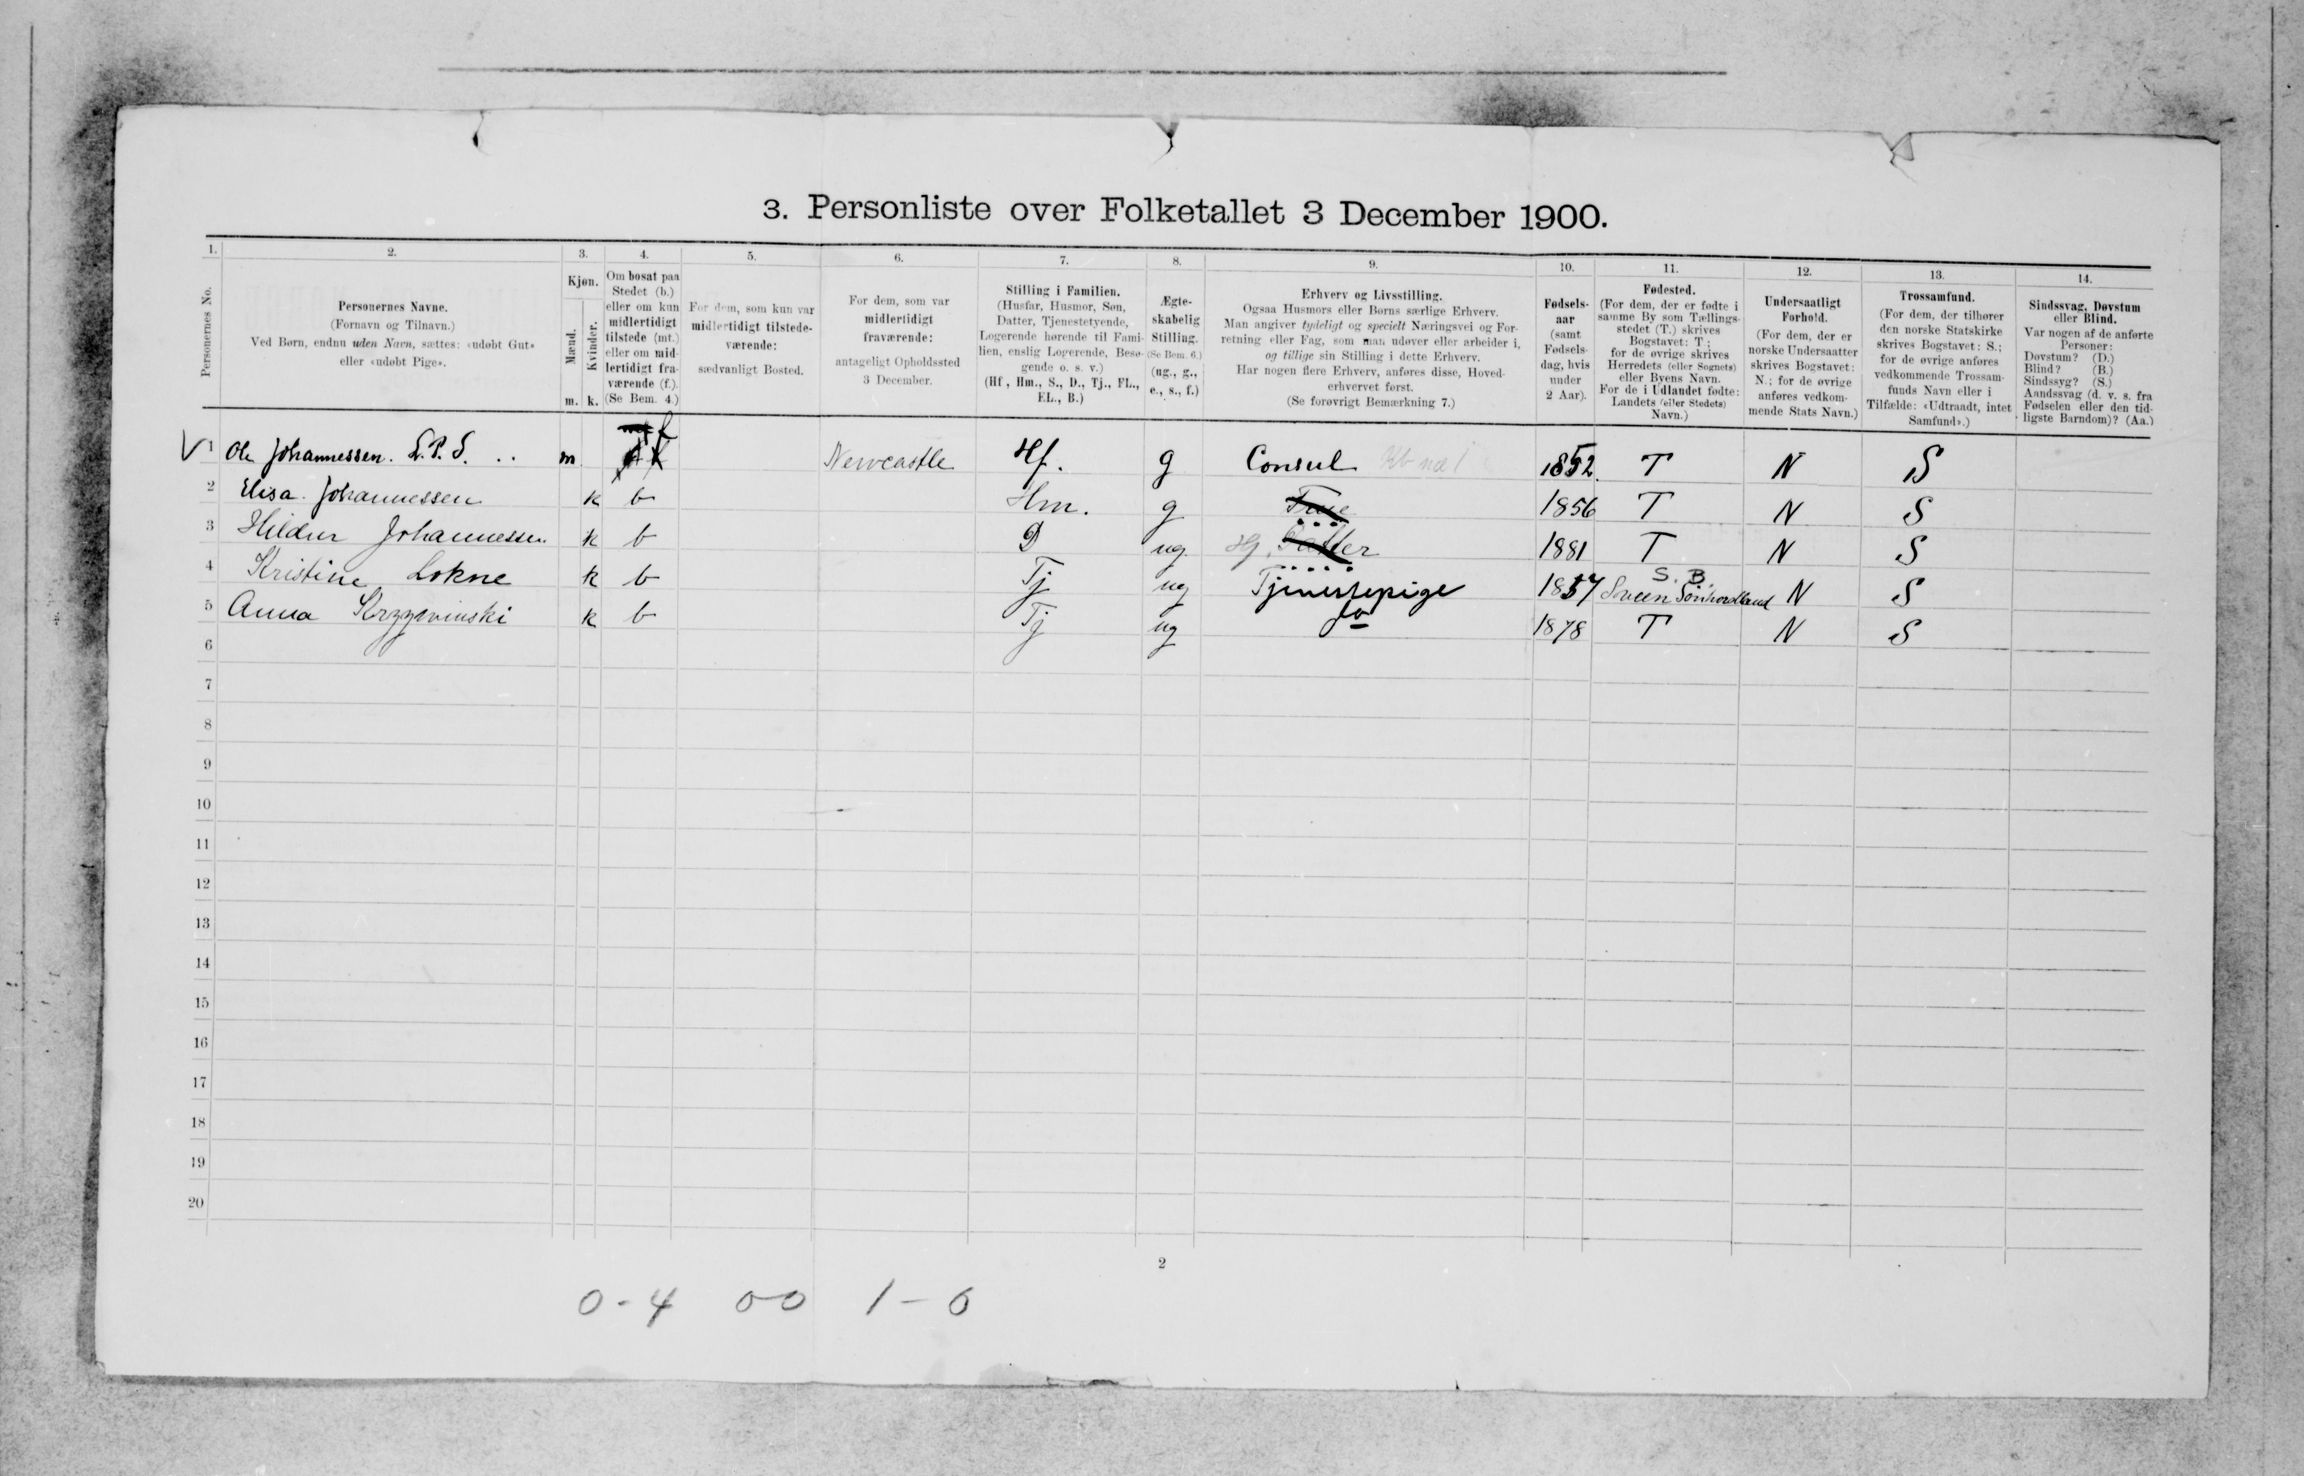 3. Personliste over Folketallet 3 December 1900.
1. 2. 3. 4. 5. 6. 7. 8. 9. 10. 11. 12. 13. 14.
Personernes No.
Personernes Navne.
(Fornavn og Tilnavn.)
Ved Børn, endnu uden Navn, sættes: «udøbt Gut»
eller «udøbt Pige».
Kjøn.
Mænd.
Kvinder.
m. k.
Om bosat paa
Stedet (b.)
eller om kun
midlertidigt
tilstede (mt.)
eller om mid-
lertidigt fra-
værende (f.).
(Se Bem. 4.)
For dem, som kun var
midlertidigt tilstede-
værende:
sædvanligt Bosted.
For dem, som var
midlertidigt
fraværende:
antageligt Opholdssted
3 December.
Stilling i Familien.
(Husfar, Husmor, Søn,
Datter, Tjenestetyende,
Logerende hørende til Fami-
lien, enslig Logerende, Besø-
gende o. s. v.)
(Hf., Hm., S., D., Tj., FL.,
EL., B.)
Ægte-
skabelig
Stilling.
(Se Bem. 6.)
(ug., g.,
e., s., f.)
Erhverv og Livsstilling.
Ogsaa Husmors eller Børns særlige Erhverv.
Man angiver tydeligt og specielt Næringsvei og For-
retning eller Fag, som man udøver eller arbeider i,
og tillige sin Stilling i dette Erhverv.
Har nogen flere Erhverv, anføres disse, Hoved-
erhvervet først.
(Se forøvrigt Bemærkning 7.)
Fødsels-
aar
(samt
Fødsels-
dag, hvis
under
2 Aar).
Fødested.
(For dem, der er fødte i
samme By som Tællings-
stedet (T.) skrives
Bogstavet: T.;
for de øvrige skrives
Herredets (eller Sognets)
eller Byens Navn.
For de i Udlandet fødte:
Landets (eller Stedets)
Navn.)
Undersaatligt
Forhold.
(For dem, der er
norske Undersaatter
skrives Bogstavet:
N.; for de øvrige
anføres vedkom-
mende Stats Navn.)
Trossamfund.
(For dem, der tilhører
den norske Statskirke
skrives Bogstavet: S.;
for de øvrige anføres
vedkommende Trossam-
funds Navn eller i
Tilfælde: «Udtraadt, intet
Samfund».)
Sindssvag, Døvstum
eller Blind.
Var nogen af de anførte
Personer:
Døvstum? (D.)
Blind? (B.)
Sindssyg? (S.)
Aandssvag (d. v. s. fra
Fødselen eller den tid-
ligste Barndom)? (Aa.)
f
1 Ole Johannessen. L.P.S. m Newcastle Hf. g Consul 1852. T N S
2 Elisa Johannessen k b Hm. g Frue 1856 T N S
3 Hildur Johannessen k b D ug Hj. Datter 1881 T N S
S. B.
4 Kristine Lokne k b Tj ug Tjenestepige 1857 Sveen Søndhordland N S
5 Anna Krzyzevinski k b Tj ug do 1878 T N S
6
7
8
9
10
11
12
13
14
15
16
17
18
19
20
2
0-4 00 1-0